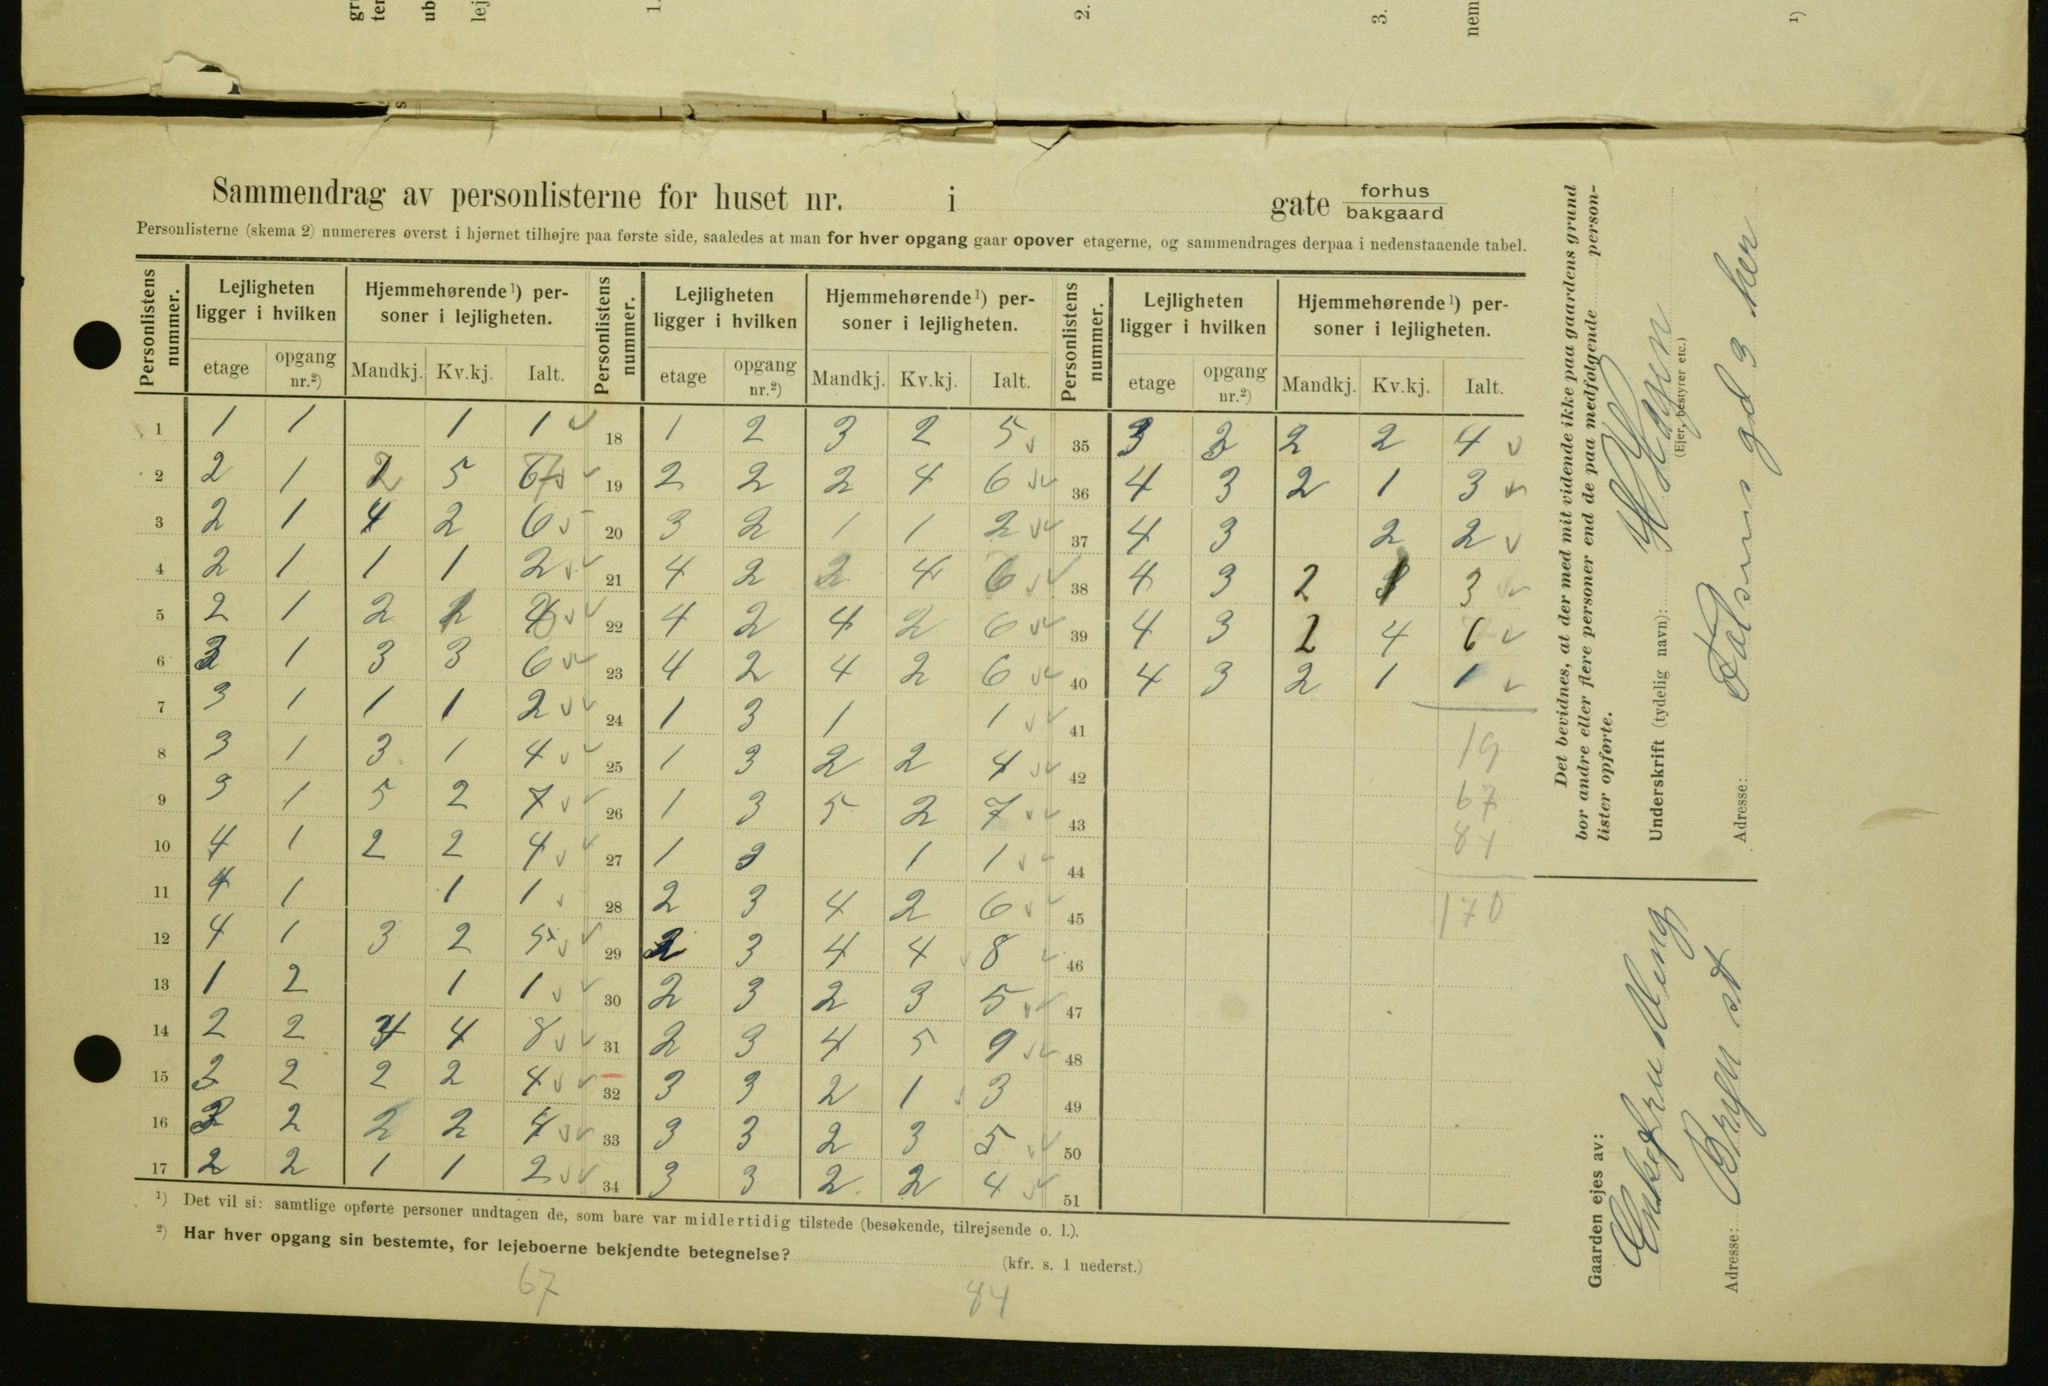 Sammendrag av personlisterne for huset nr. i gate forhus bakgaard
Personlisterne (skema 2) numereres øverst i hjørnet tilhøjre paa første side, saaledes at man for hver opgang gaar opover etagerne, og sammendrages derpaa i nedenstaaende tabel.
Personlistens nummer. Lejligheten ligger i hvilken Hjemmehørende¹) personer i lejligheten. Personlistens nummer. Lejligheten ligger i hvilken Hjemmehørende¹) personer i lejligheten. Personlistens nummer. Lejligheten ligger i hvilken Hjemmehørende¹) personer i lejligheten.
etage opgang nr.²) Mandkj. Kv.kj. Ialt. etage opgang nr.²) Mandkj. Kv.kj. Ialt. etage opgang nr.²) Mandkj. Kv.kj. Ialt.
1 1 1 1 1 18 1 2 3 2 5 35 3 3 2 2 4
2 2 1 5 19 2 2 2 4 6 36 4 3 2 1 3
3 2 1 4 2 6 20 3 2 1 1 2 37 4 3 2 2
4 2 1 1 1 2 21 4 2 2 4 6 38 4 3 2 1 3
5 2 1 2 22 4 2 4 2 6 39 4 3 2 4 6
6 3 1 3 3 6 23 4 2 4 2 6 40 4 3 2 1 1
7 3 1 1 1 2 24 1 3 1 1 41
8 3 1 3 1 4 25 1 3 2 2 4 42
9 3 1 5 2 7 26 1 3 5 2 7 43
10 4 1 2 2 4 27 1 3 1 1 44
11 4 1 1 1 28 2 3 4 2 6 45
12 4 1 3 2 5 29 2 3 4 4 8 46
13 1 2 1 1 30 2 3 2 3 5 47
14 2 2 4 4 8 31 2 3 4 5 9 48
15 2 2 2 2 4 32 3 3 2 1 3 49
16 2 2 2 2 4 33 3 3 2 3 5 50
17 2 2 1 1 2 34 3 3 2 2 4 51
19
67
84
170
¹) Det vil si: samtlige opførte personer undtagen de, som bare var midlertidig tilstede (besøkende, tilrejsende o. l.).
²) Har hver opgang sin bestemte, for lejeboerne bekjendte betegnelse? (kfr. s. 1 nederst.)
67 84
Det bevidnes, at der med mit vidende ikke paa gaardens grund
bor andre eller flere personer end de paa medfølgende personlister opførte.
Underskrift (tydelig navn):
(Ejer, bestyrer etc.)
Adresse: gd 3 her
Gaarden ejes av:
Enkefru Ming
Adresse: Bryn st
1.
2.
3.
nem
¹)
ub
lej